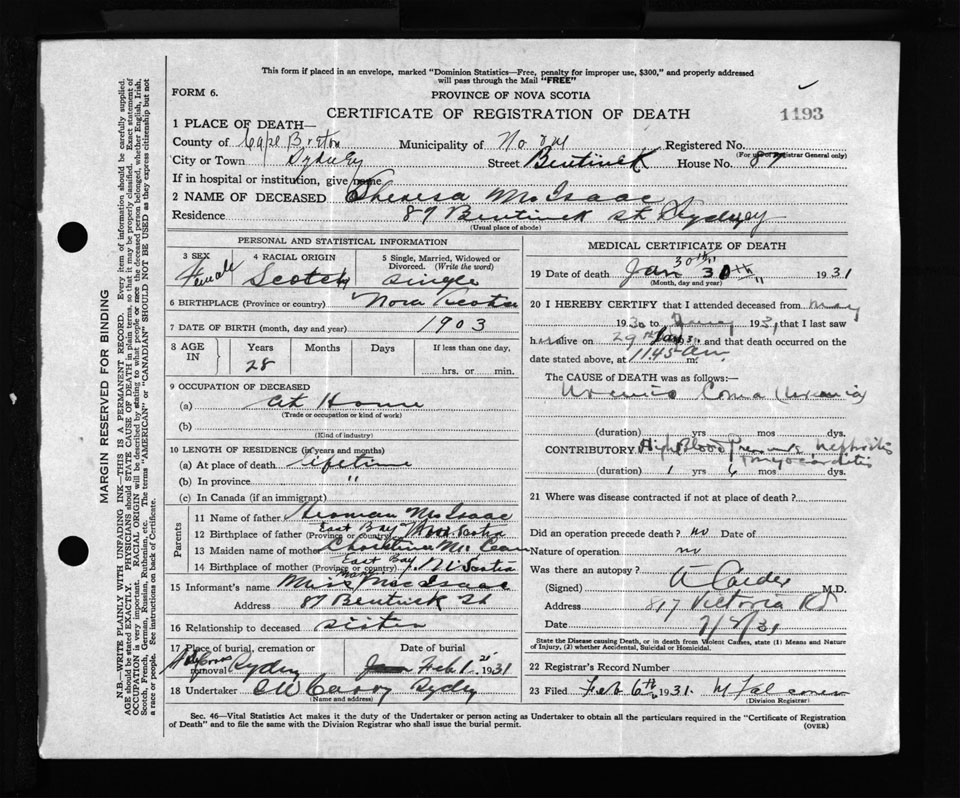 This form if placed in an envelope, marked "Dominion Statistics—Free, penalty for improper use, $300," and properly addressed
will pass through the Mail "FREE"
FORM 6.
PROVINCE OF NOVA SCOTIA
CERTIFICATE OF REGISTRATION OF DEATH
1193
1 PLACE OF DEATH—
County of Cape Breton Municipality of Registered No.
(For use of Registrar General only)
City or Town Sydney Street Bentinck House No. 87
If in hospital or institution, give name
2 NAME OF DECEASED Theresa McIsaac
Residence 87 Bentinck St Sydney
(Usual place of abode)
PERSONAL AND STATISTICAL INFORMATION
3 SEX Female
4 RACIAL ORIGIN Scotch
5 Single, Married, Widowed or Divorced. (Write the word) Single
6 BIRTHPLACE (Province or country) Nova Scotia
7 DATE OF BIRTH (month, day and year) 1903
8 AGE IN Years Months Days If less than one day,
28 hrs. or min.
9 OCCUPATION OF DECEASED
(a) At Home
(Trade or occupation or kind of work)
(b)
(Kind of industry)
10 LENGTH OF RESIDENCE (in years and months)
(a) At place of death lifetime
(b) In province "
(c) In Canada (if an immigrant)
Parents
11 Name of father McIsaac
12 Birthplace of father (Province or country) East Bay Nova Scotia
13 Maiden name of mother McLean
14 Birthplace of mother (Province or country) East Bay N. Scotia
15 Informant's name Miss Mary MacIsaac
Address 87 Bentinck St
16 Relationship to deceased sister
17 Place of burial, cremation or removal Sydney
Date of burial Feb 1st 1931
18 Undertaker Sydney
(Name and address)
MEDICAL CERTIFICATE OF DEATH
19 Date of death Jan 30th 1931
(Month, day and year)
20 I HEREBY CERTIFY that I attended deceased from May
1930 to 1931 that I last saw
h alive on 29 Jan and that death occurred on
date stated above, at 1145 am m.
The CAUSE of DEATH was as follows:—
Uremic Coma (Uremia)
(duration) yrs mos dys.
CONTRIBUTORY High Blood Pressure Nephritis
Myocarditis
(duration) 1 yrs 6 mos dys.
21 Where was disease contracted if not at place of death?
Did an operation precede death? no Date of
Nature of operation no
Was there an autopsy?
(Signed) Calder M.D.
Address 817 Victoria Rd
Date
State the Disease causing Death, or in death from Violent Causes, state (1) Means and Nature
of Injury, (2) whether Accidental, Suicidal or Homicidal.
22 Registrar's Record Number
23 Filed Feb 6th 1931. Falconer
(Division Registrar)
Sec. 46—Vital Statistics Act makes it the duty of the Undertaker or person acting as Undertaker to obtain all the particulars required in the "Certificate of Registration
of Death" and to file the same with the Division Registrar who shall issue the burial permit.
(OVER)
MARGIN RESERVED FOR BINDING
N.B.—WRITE PLAINLY WITH UNFADING INK—THIS IS A PERMANENT RECORD. Every item of information should be carefully supplied.
AGE should be stated EXACTLY. PHYSICIANS should STATE CAUSE OF DEATH in plain terms, so that it may be properly classified. Exact statement of
OCCUPATION is very important. RACIAL ORIGIN will be described by stating to what people or race the deceased person belonged, whether English, Irish,
Scotch, French, German, Russian, Ruthenian, etc. The terms "AMERICAN" or "CANADIAN" SHOULD NOT BE USED as they express citizenship but not
a race or people. See instructions on back of Certificate.